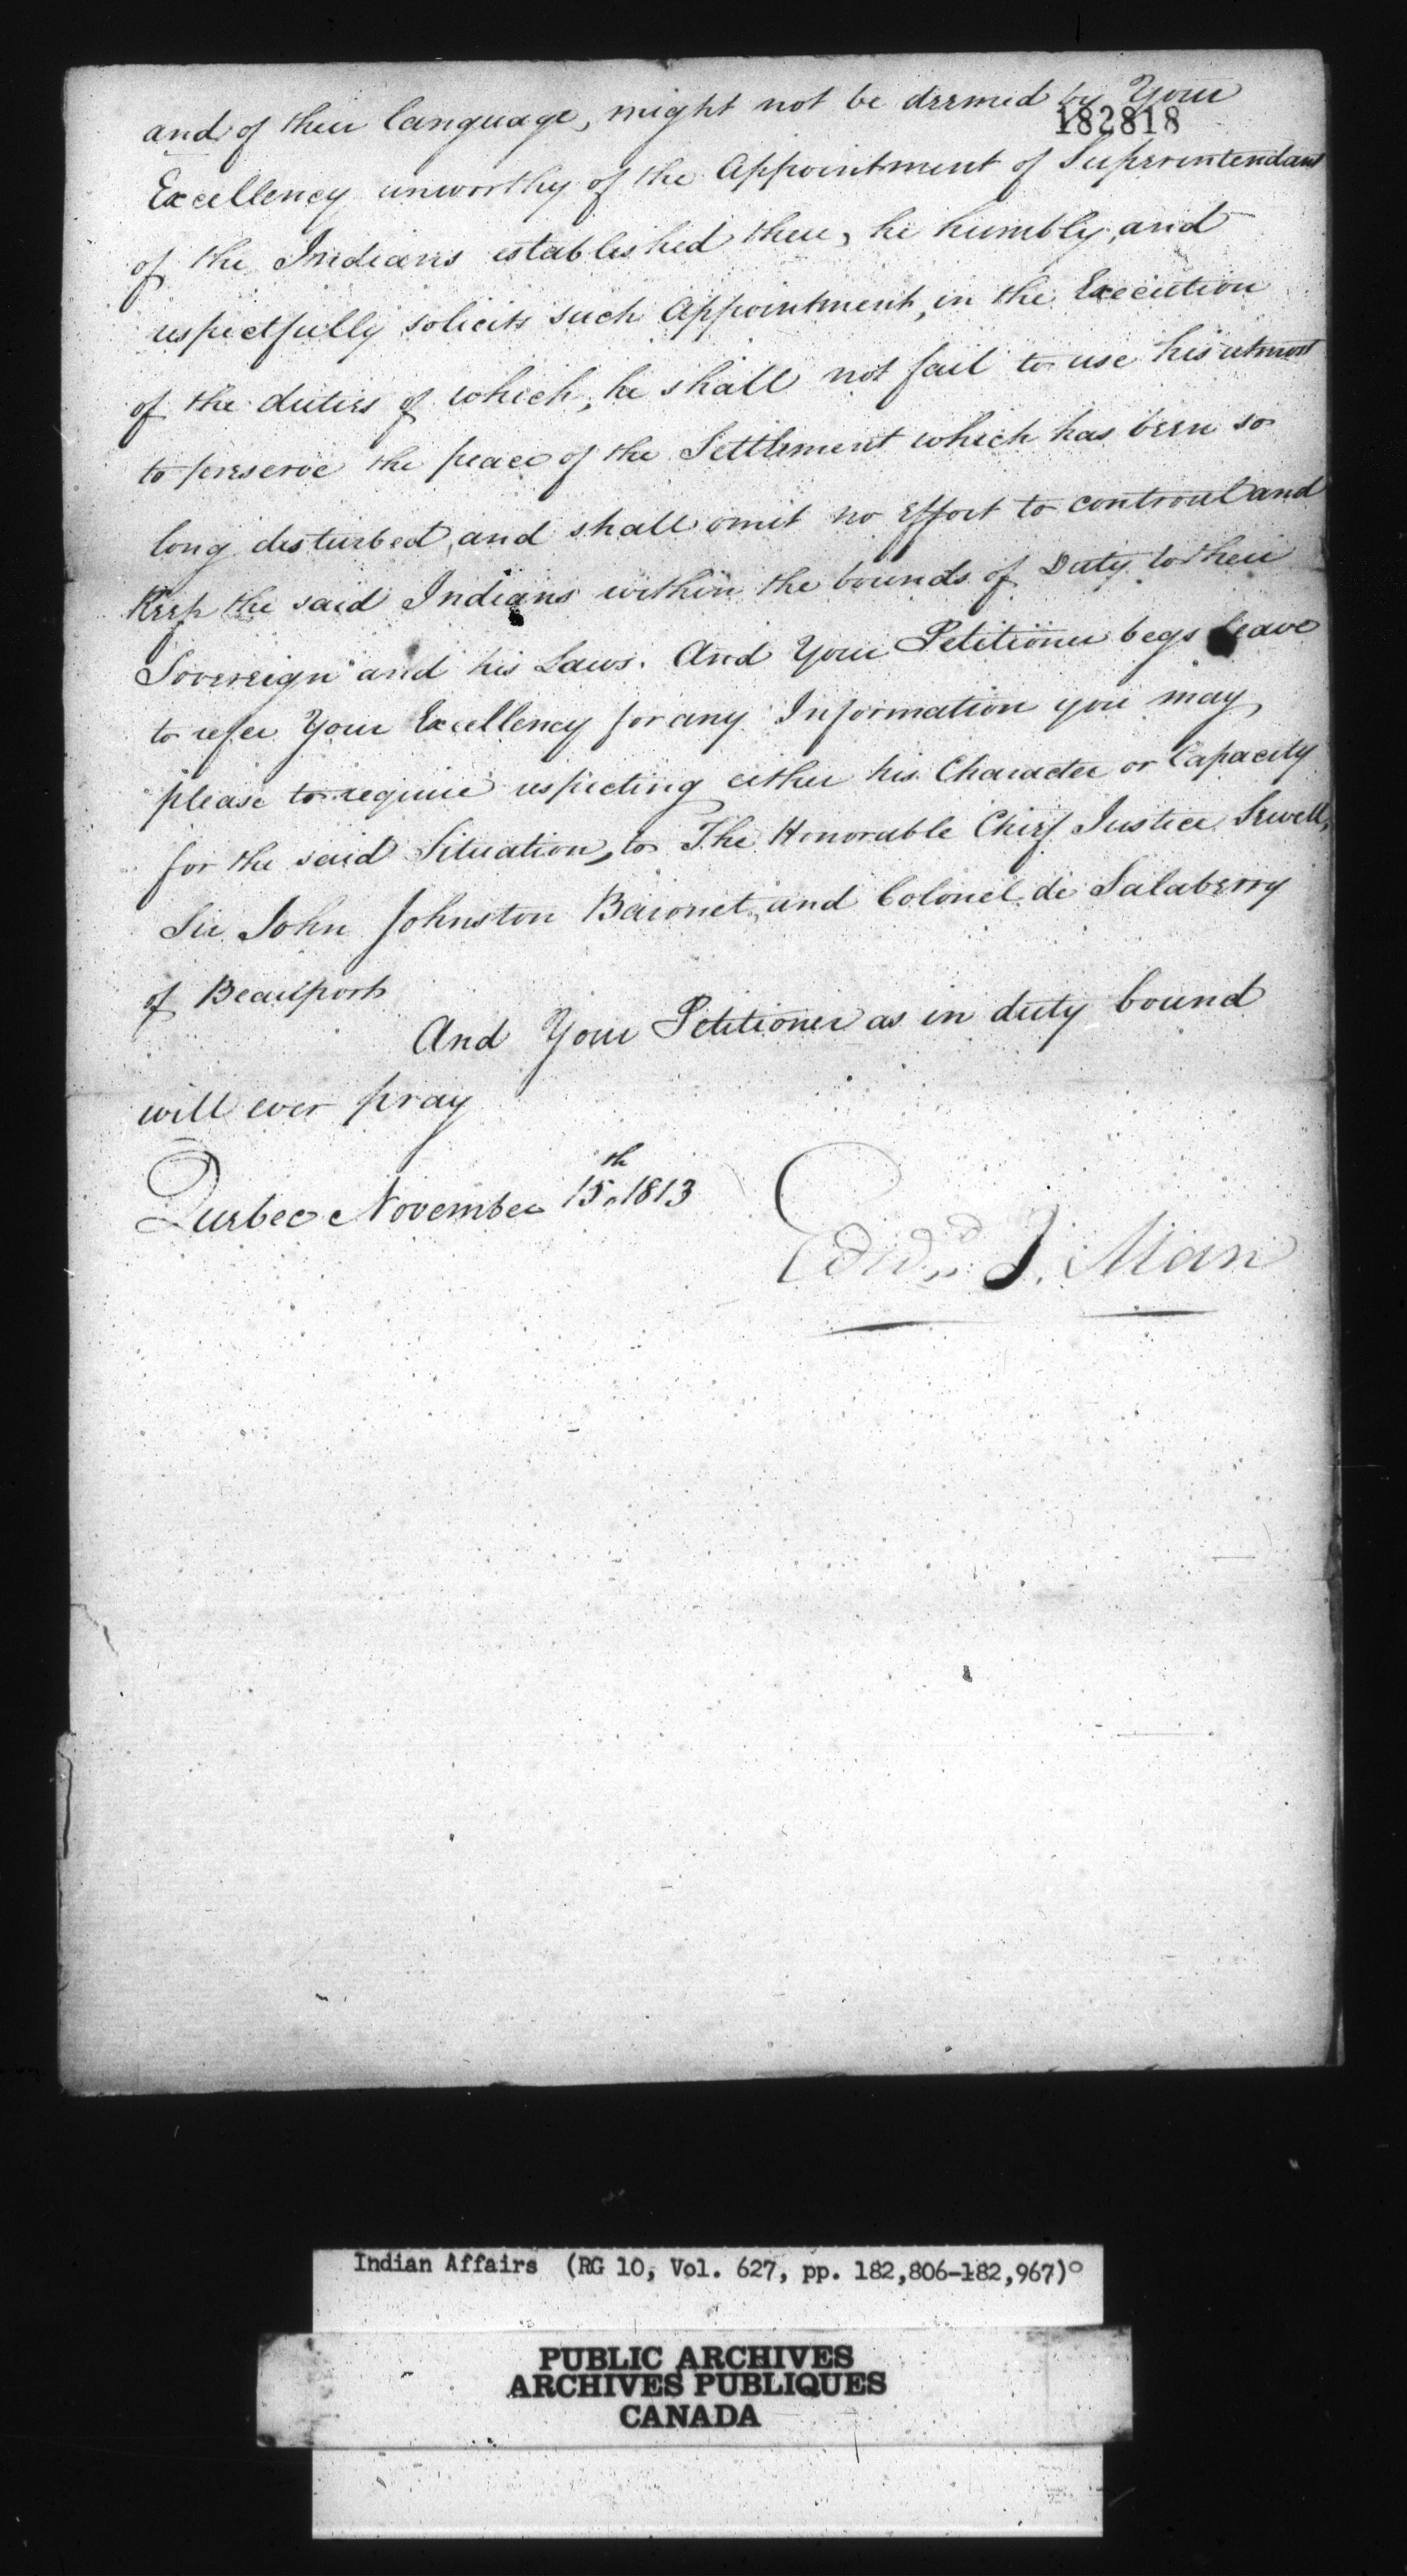 and of their language, might not be deemed by Your
182818
Excellency unworthy of the Appointment of Superintendant
of the Indians established there, he humbly, and
respectfully solicits such Appointment, in the Execution
of the duties of which, he shall not fail to use his utmost
to preserve the peace of the Settlement which has been so
long disturbed, and shall omit no Effort to controul and
Keep the said Indians within the bounds of Duty to their
Sovereign and his Laws. And Your Petitioner begs leave
to refer Your Excellency for any Information you may
please to require respecting either his Character or Capacity
for the said Situation, to The Honorable Chief Justice Sewell,
Sir John Johnston Baronet, and Colonel de Salaberry
of Beauport
And Your Petitioner as in duty bound
will ever pray
Quebec November 15th 1813
Edwd. I. Man
Indian Affairs (RG 10, Vol. 627, pp. 182,806-182,967)
PUBLIC ARCHIVES
ARCHIVES PUBLIQUES
CANADA